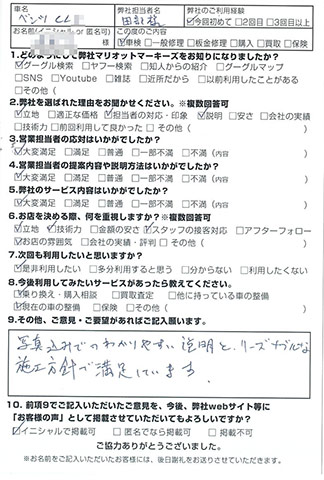 車名
ベンツ CL
弊社担当者名
弊社のご利用経験
☑今回初めて □2回目 □3回目以上
お名前(イニシャル or 匿名可)
この度のご内容
☑車検 □一般修理 □板金修理 □購入 □買取 □保険
1.どのようにして弊社マリオットマーキーズをお知りになりましたか?
☑グーグル検索 □ヤフー検索 □知人からの紹介 □グーグルマップ
□SNS □Youtube □雑誌 □近所だから □以前利用したことがある
□その他(
2.弊社を選ばれた理由をお聞かせください。※複数回答可
☑立地 □適正な価格 ☑担当者の対応・印象 ☑説明 □安さ □会社の実績
□技術力 □前回利用して良かった □その他(
3.営業担当者の応対はいかがでしたか?
☑大変満足 □満足 □普通 □一部不満 □不満(内容
4.営業担当者の提案内容や説明方法はいかがでしたか?
☑大変満足 □満足 □普通 □一部不満 □不満(内容
5.弊社のサービス内容はいかがでしたか?
☑大変満足 □満足 □普通 □一部不満 □不満(内容
6.お店を決める際、何を重視しますか?※複数回答可
☑立地 ☑技術力 □金額の安さ ☑スタッフの接客対応 □アフターフォロー
☑お店の雰囲気 □会社の実績・評判 □その他(
7.次回も利用したいと思いますか?
☑是非利用したい □多分利用すると思う □分からない □利用したくない
8.今後利用してみたいサービスがあったら教えてください。
☑乗り換え・購入相談 □買取査定 □他に持っている車の整備
☑現在の車の整備 □保険 □その他(
9.その他、ご意見・ご要望があればご記入願います。
写真込みでのわかりやすい説明と、リーズナブルな
施工方針で満足しています。
10.前項9でご記入いただいたご意見を、今後、弊社webサイト等に
「お客様の声」として掲載させていただいてもよろしいですか?
☑イニシャルで掲載可 □匿名でなら掲載可 □掲載不可
ご協力ありがとうございました。
※お名前をご記入いただいたお客様には、後日謝礼をお送りさせていただきます。